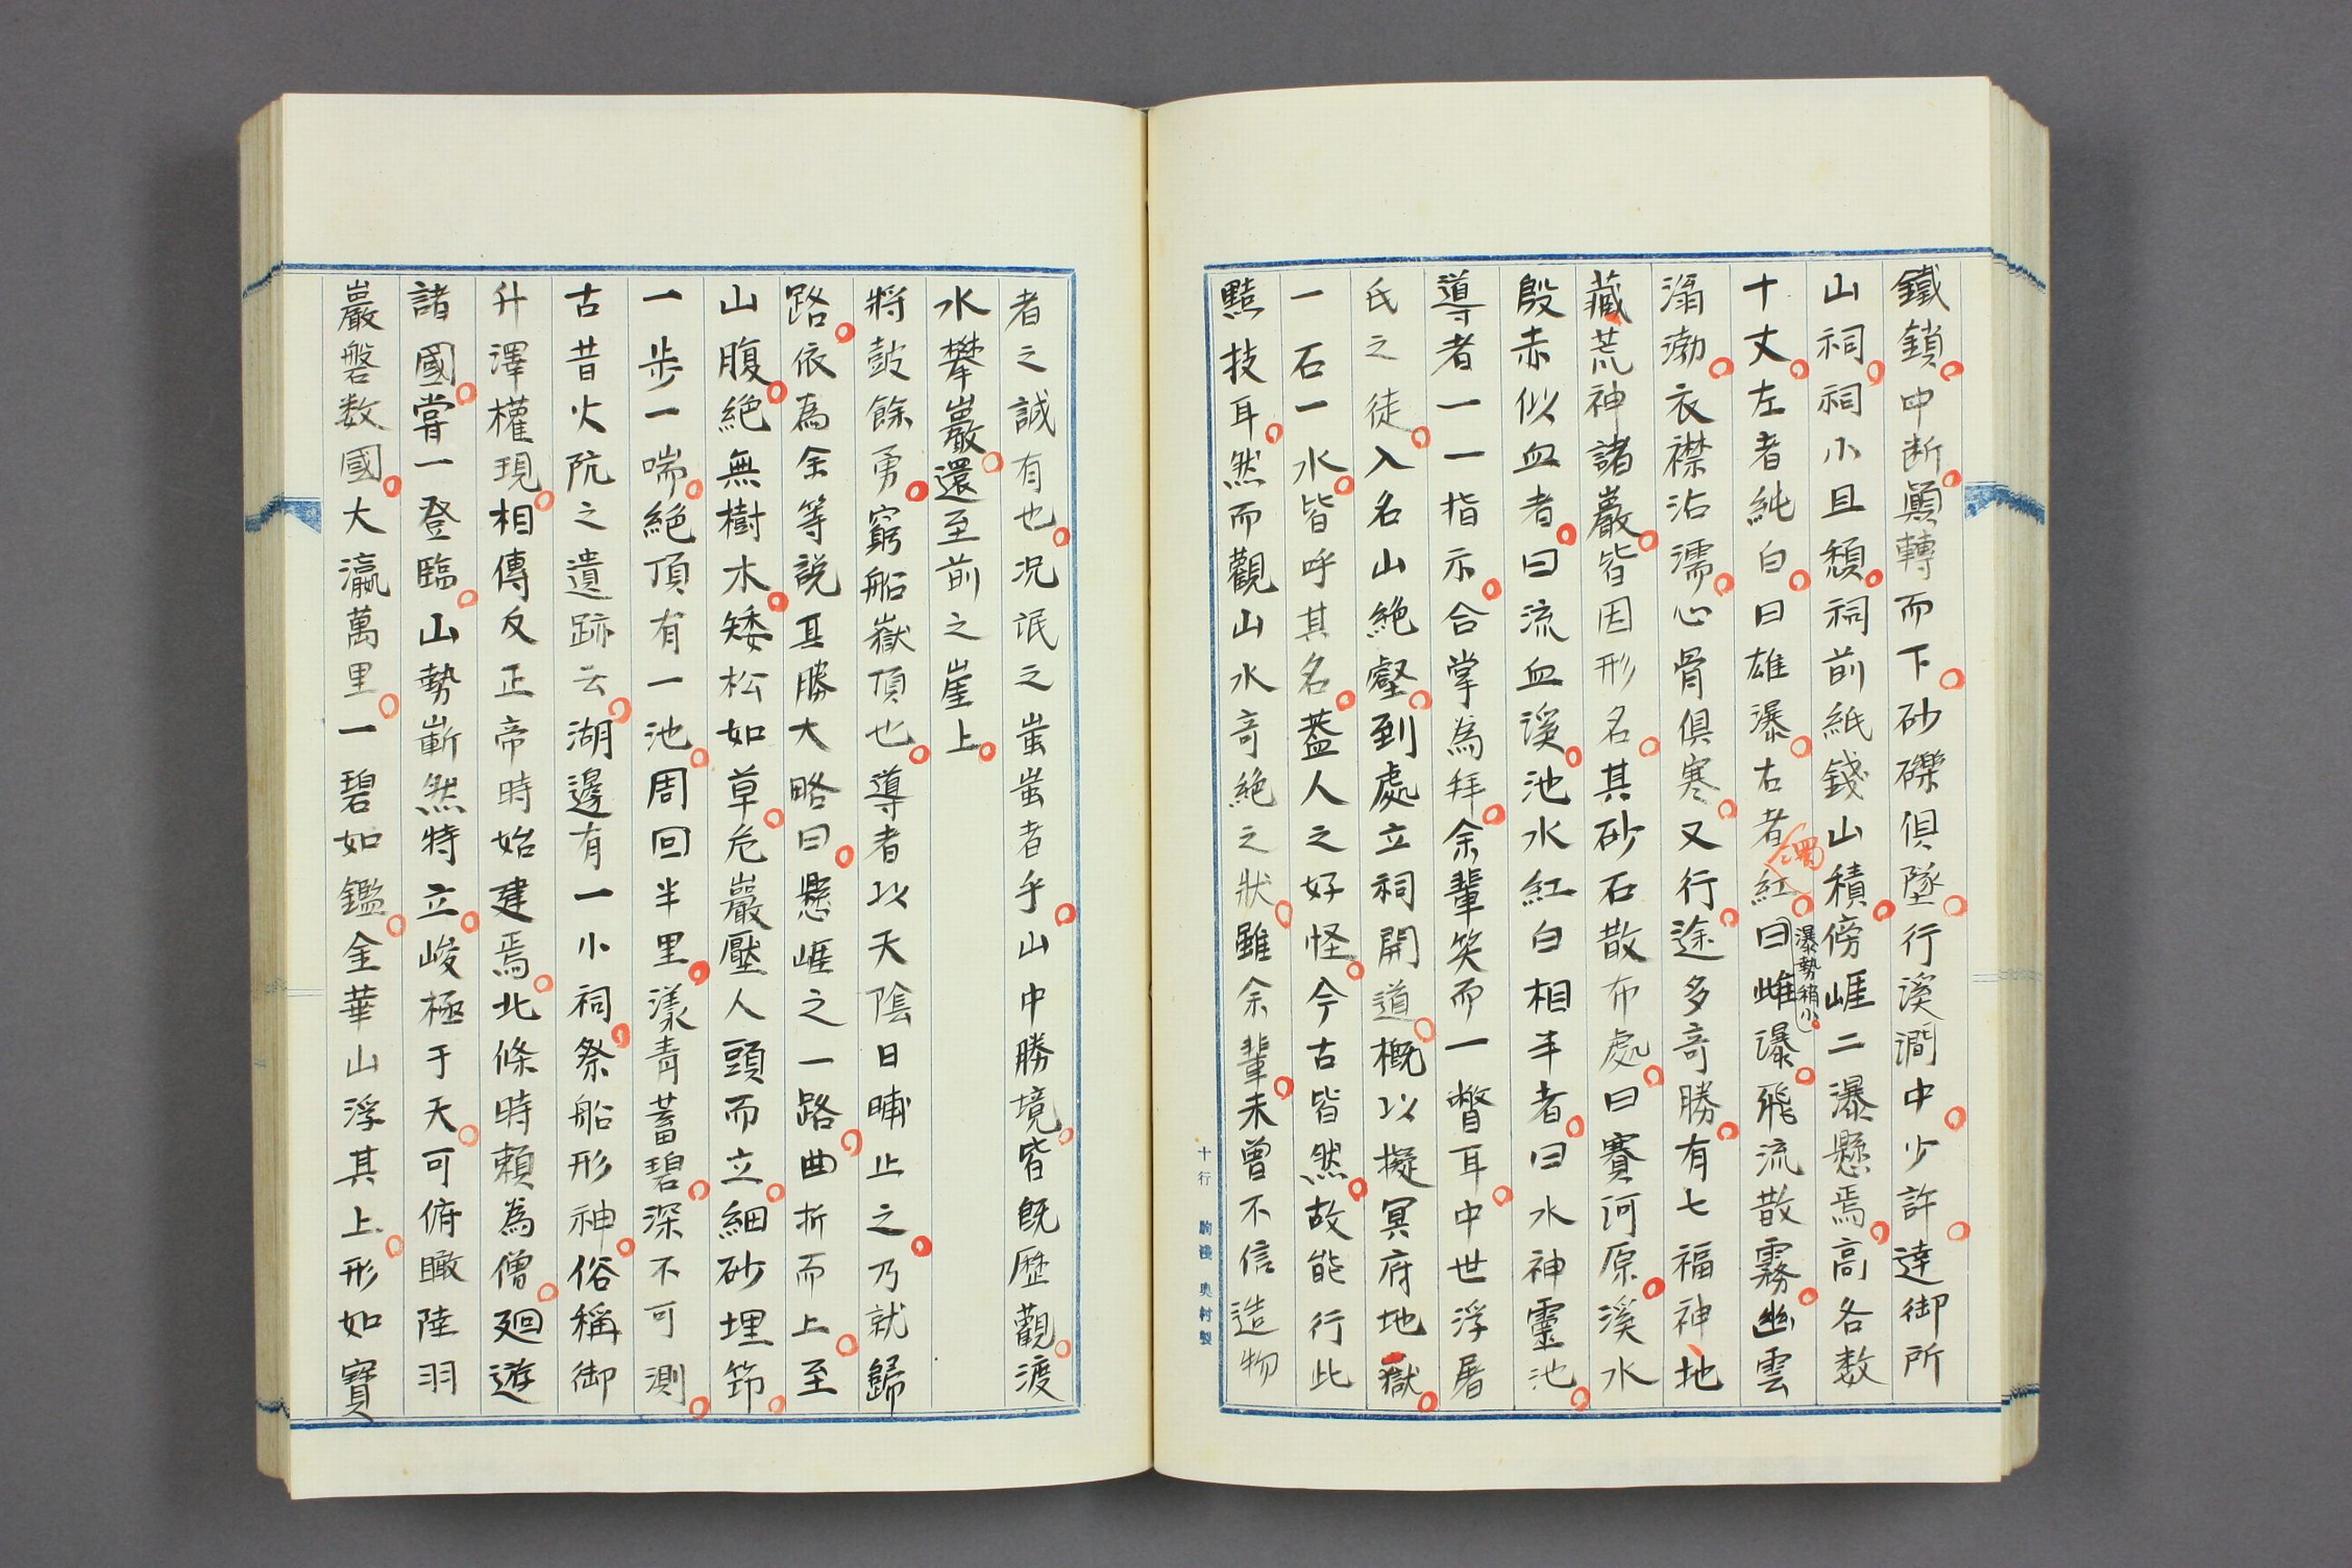 鐵鎖。中断。顚轉而下。砂礫俱墜。行溪澗中。少許。達御所
山祠。祠小且頽。祠前紙錢山積。傍崕二瀑懸焉。高各数
十丈。左者純白。曰雄瀑。右者濁紅。曰雌瀑。瀑勢稍小。飛流散霧。幽雲
滃渤。衣襟沾濡。心骨俱寒。又行。途多奇勝。有七福神、地
藏、荒神諸巖。皆因形名。其砂石散布處。曰賽河原。溪水
殷赤似血者。曰流血溪。池水紅白相半者。曰水神靈池。
導者一一指示。合掌為拜。余輩笑而一瞥耳。中世浮屠
氏之徒。入名山絶壑。到處立祠開道。概以擬冥府地獄。
一石一水。皆呼其名。葢人之好怪。今古皆然。故能行此
黠技耳。然而觀山水奇絶之狀。雖余輩。未曾不信造物
十行 奥村製
者之誠有也。况氓之蚩蚩者乎。山中勝境。皆既歷觀。渡
水攀巖。還至前之崖上。
將鼓餘勇。窮船嶽頂也。導者以天陰日晡止之。乃就歸
路。依為余等説其勝大略曰。懸崕之一路。曲折而上。至
山腹。絶無樹木。矮松如草。危巖壓人頭而立。細砂埋筇。
一步一喘。絶頂有一池。周回半里。漾青蓄碧。深不可測。
古昔火阬之遺跡云。湖邊有一小祠。祭船形神。俗稱御
升澤權現。相傳反正帝時始建焉。北條時頼為僧。廻遊
諸國。嘗一登臨。山勢嶄然特立。峻極于天。可俯瞰陸羽
巖磐数國。大瀛萬里。一碧如鑑。金華山浮其上。形如寶